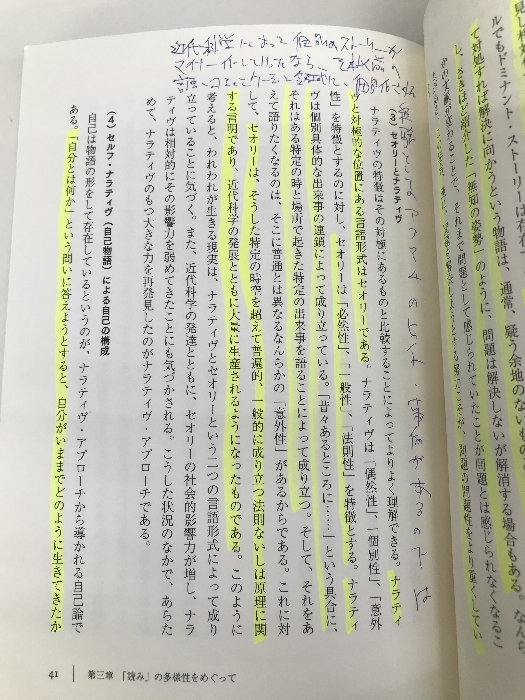 見し
ルでもドミナント・ストーリーは存在
疑う余地のない
て対処すれば解決に向かうという物語は、通常、
し、さきほど紹介した「無知の姿勢」のように、問題は解決しないが解消する場合もある。なんら
変わることで、それまで問題として感じられていたことが問題とは感じられなくなるこ
こそが、問題の問題性をより重くしてい
近代科学によって個別のストーリーが
マイナー化していったなら、
(3) セオリーとナラティヴ
ナラティヴの特徴はその対極にあるものと比較することによってよりよく理解できる。ナラティ
ヴと対極的な位置にある言語形式はセオリーである。ナラティヴは「偶然性」、「個別性」、「意外
性」を特徴とするのに対し、セオリーは「必然性」、「一般性」、「法則性」を特徴とする。ナラティ
ヴは個別具体的な出来事の連鎖によって成り立っている。「昔々あるところに……」という具合に、
それはある特定の時と場所で起きた特定の出来事を語ることによって成り立つ。そして、それをあ
えて語りたくなるのは、そこに普通とは異なるなんらかの「意外性」があるからである。これに対
して、セオリーは、そうした特定の時空を超えて普遍的、一般的に成り立つ法則ないしは原理に関
する言明であり、近代科学の発展とともに大量に生産されるようになったものである。このように
考えると、われわれが生きる現実は、ナラティヴとセオリーという二つの言語形式によって成り
立っていることに気づく。また、近代科学の発達とともに、セオリーの社会的影響力が増し、ナラ
ティヴは相対的にその影響力を弱めてきたことにも気づかされる。こうした状況のなかで、あらた
めて、ナラティヴのもつ大きな力を再発見したのがナラティヴ・アプローチである。
(4) セルフ・ナラティヴ(自己物語)による自己の構成
自己は物語の形をして存在しているというのが、ナラティヴ・アプローチから導かれる自己論で
ある。「自分とは何か」という問いに答えようとすると、自分がいままでどのように生きてきたか
41 第三章 「読み」の多様性をめぐって